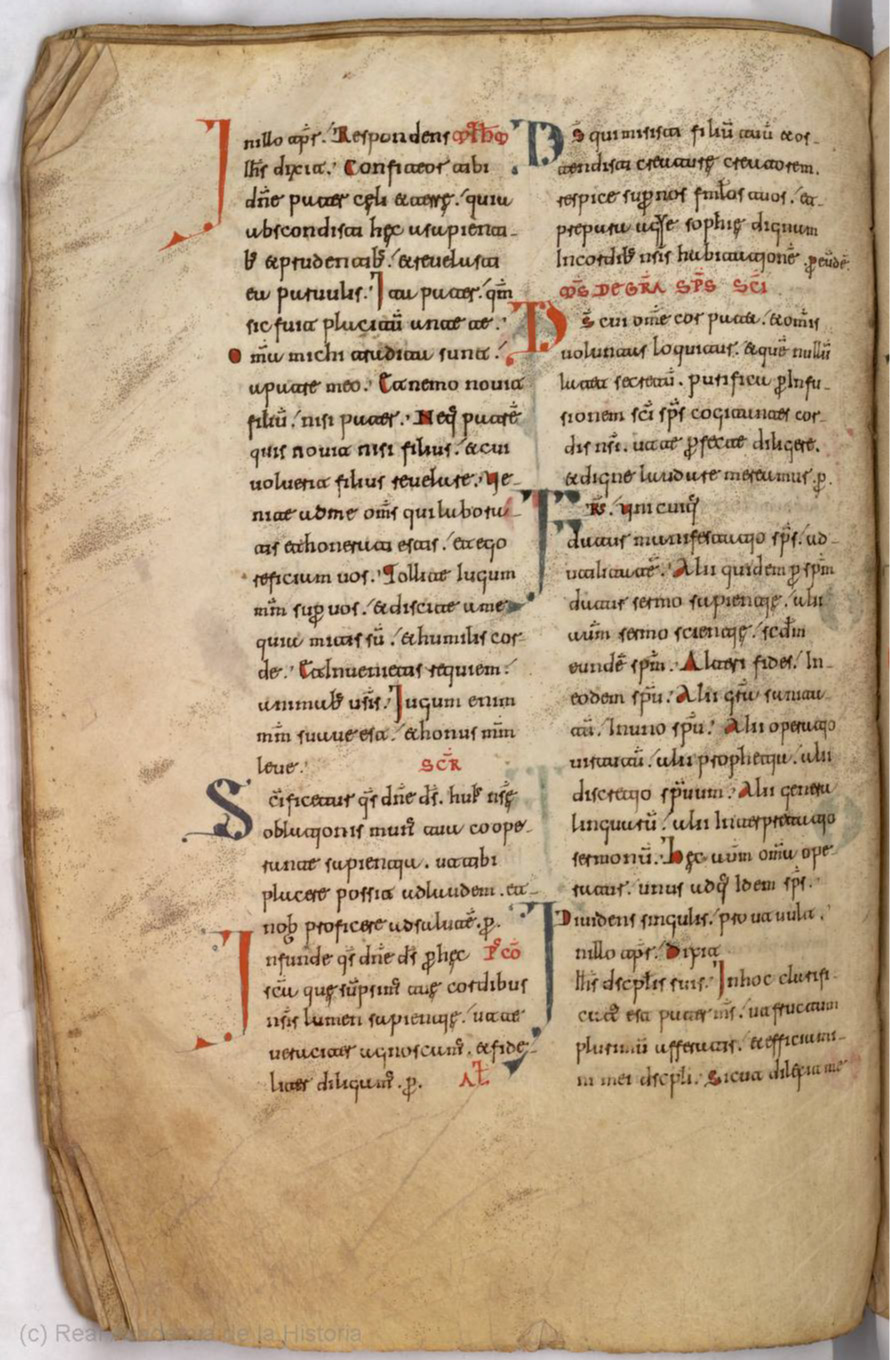 Jnillo tp̄r. Respondens
ihs dixit. Confiteor tibi
dn̄e pater cęli et terrę. quia
abscondisti hęc a sapienti-
bꝰ et prudentibꝰ. et reuelasti
ea paruulis. Ita pater. qm̄
sic fuit placitū ante te.
Omīa michi tradita sunt.
a patre meo. Et nemo nouit
filiū. nisi pater. Neq; patrē
quis nouit nisi filius. et cui
uoluerit filius reuelare. Ue-
nite ad me om̄s qui labora-
tis et honerati estis. et ego
reficiam uos. Tollite iugum
mm̄ sup̄ uos. et discite a me
quia mitis sū. et humilis cor-
de. Et Inuenietis requiem.
animabꝰ ur̄is. Jugum enim
mm̄ suaue est. et honus mm̄
leue. SCR̄
Sc̄ificetur q̄s dn̄e ds̄. huiꝰ nr̄ę
oblationis munꝰ tua coope-
rante sapientia. ut tibi
placere possit ad laudem. et
nob̄ proficere ad salutē. p̄.
Jnfunde q̄s dn̄e ds̄ p̄ hęc PꝰCŌ
sc̄a quę sūpsimꝰ tuę cordibus
nr̄is lumen sapientię. ut te
ueraciter agnoscamꝰ. et fide-
liter diligamꝰ. p̄. AL̄
Ds̄ qui misisti filiū tuū et os-
tendisti creaturę creatorem.
respice sup̄ nos famłos tuos. et
prepara aḡie sophię dignam
In cordibꝰ nr̄is habitationē. p̄ eundē
MS̄ DE GR̄A SPS̄ SCĪ
Ds̄ cui om̄e cor patet. et om̄is
uoluntas loquitur. et quē nullū
latet secretū. purifica p̄ Infu-
sionem sc̄i sp̄s cogitationes cor-
dis nr̄i. ut te p̄fecte diligere.
et digne laudare mereamur. p̄.
F̄Rs̄. Unicuiq;
datur manifestatio sp̄s. ad
utilitatē. Alii quidem p̄ sp̄m
datur sermo sapientię. alii
aūm sermo scientię. scd̄m
eundē sp̄m. Alteri fides. In
eodem sp̄u. Alii gr̄a sanita-
tū. In uno sp̄u. Alii operatio
uirtutū. alii prophetia. alii
discretio sp̄uum. Alii genera
linguarū. alii Interpretatio
sermonū. Hęc aūm omīa ope-
ratur. unus adq; Idem sp̄s.
Diuidens singulis. pro ut uult.
Jnillo tp̄r. Dixit
ihs dscpłis suis. In hoc clarifi-
catꝰ est pater ms̄. ut fructum
plurimū afferatis. et efficiami-
ni mei dscpli. Sicut dilexit me
(c) Real Academia de la Historia